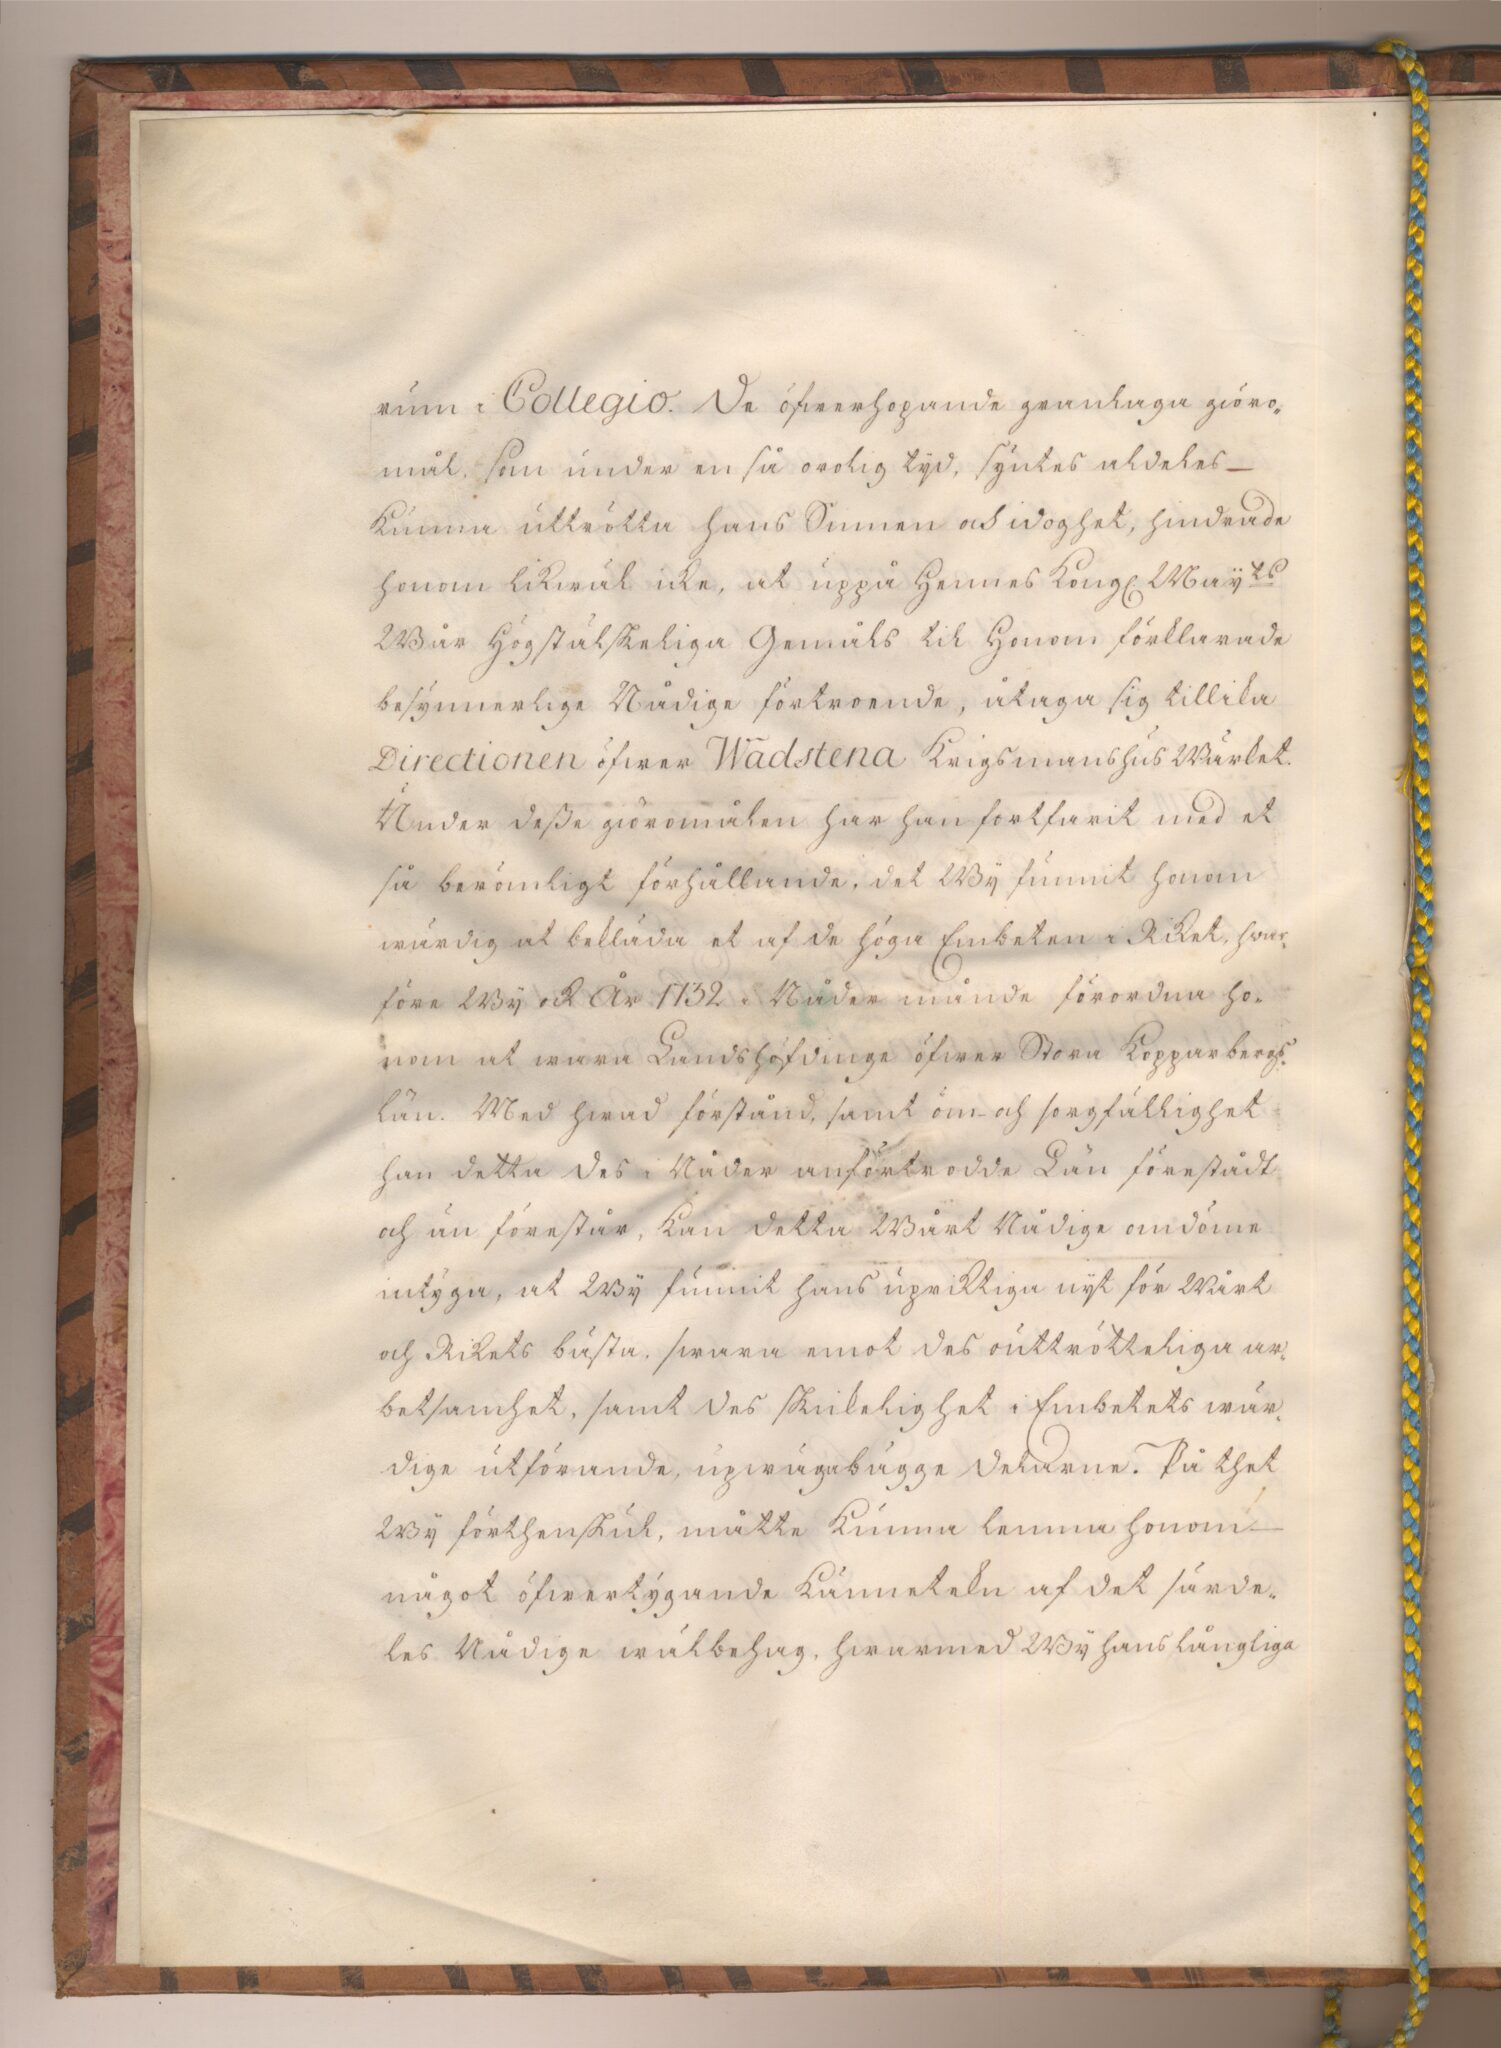 rum i Collegio. De öfwerhopande granlaga giöro„
mål, som under en så orolig tÿd, sÿntes aldeles
Kunna uttrötta hans Sinnen och idoghet, hindrade
honom likwäl icke, at uppå Hennes Kongl. Maÿ:ts
Wår Högstälskeliga Gemåls til Honom förklarade
besynnerlige Nådige förtroende, åtaga sig tillika
Directionen öfwer Wadstena Krigsmanshus Wärket.
Under deße giöromålen har han fortfarit med et
så berömligt förhållande, det Wÿ funnit honom
wärdig at bekläda et af de höga Embeten i Riket, hwar„
före Wÿ ock År 1732 i Nåder månde förordna ho„
nom at wara Landshöfdinge öfwer Stora Kopparbergs
län. Med hwad förstånd, samt öm- och sorgfällighet
han detta des i Nåder anförtrodde Län förestådt
och än förestår, kan detta Wårt Nådige omdöme
intyga, at Wÿ funnit hans upricktiga nyt för Wårt
och Rikets bästa, swara emot des outtrötteliga ar„
betsamhet, samt des skickelighet i Embetets wär„
dige utförande, upwäga bägge delarne. På thet
Wÿ förthenskul, måtte Kunna lemna honom
något öfwertygande Känneteckn af det särde„
les Nådige wälbehag, hwarmed Wÿ hans långliga